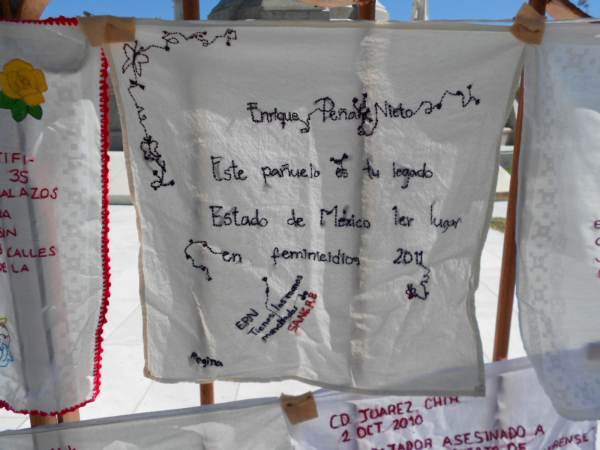 TIFI-
35
ALAZOS
CALLES
DE LA
Enrique Peña Nieto
Este pañuelo es tu legado
Estado de México 1er lugar
en feminicidios 2011
EPN
Tienes las manos
manchadas de
SANGRE
Regina
CD JUAREZ, CHIH
2 OCT. 2010
ASESINADO A